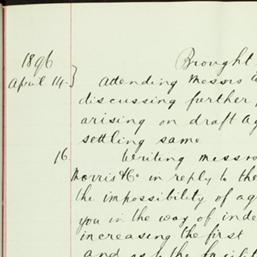 1896 Brought
April 14 } Attending Messrs
discussing further
arising on draft Ag
settling same
16 Writing Messrs
Morris & Co in reply to the
the impossibility of ag
you in the way of inde
increasing the first
and as to the